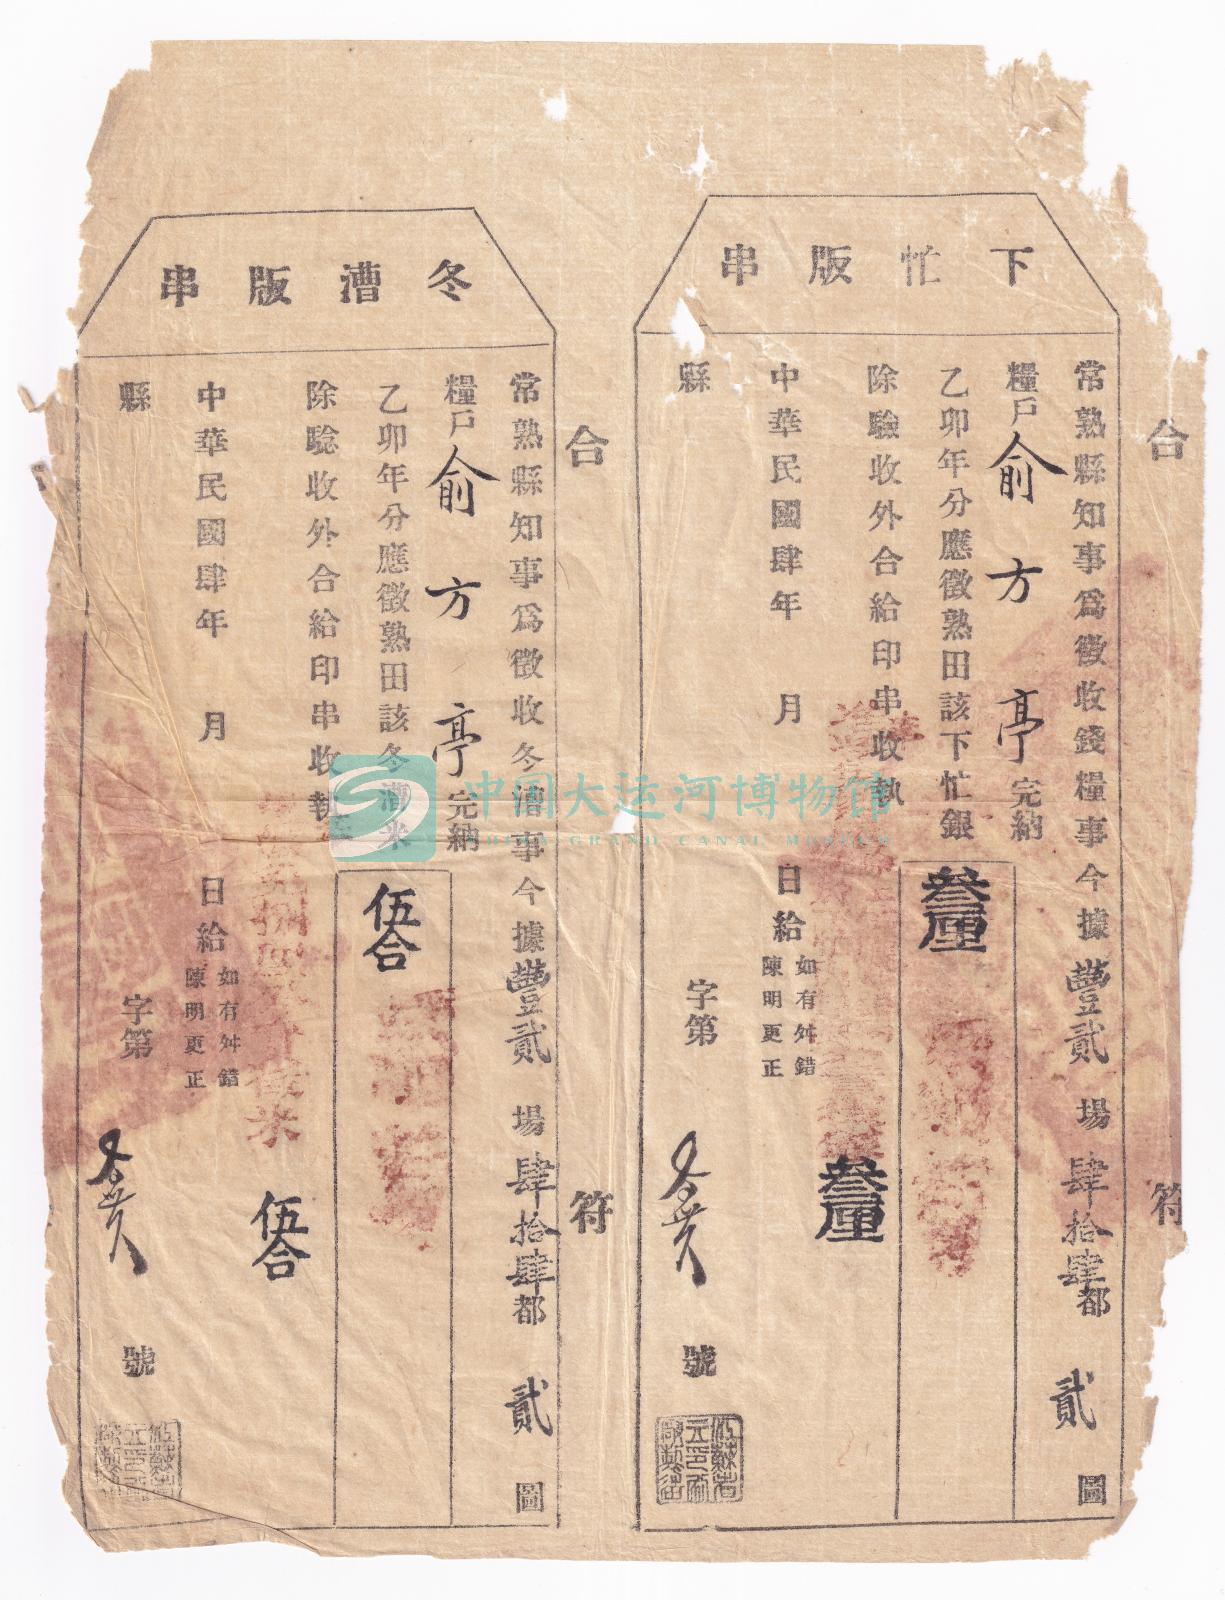 下忙版串
常熟縣知事爲徵收錢糧事今據豐貳場肆拾肆都貳圖
糧戶俞方亭完納
乙卯年分應徵熟田該下忙銀叁厘
除驗收外合給印串收執
叁厘
中華民國肆年 月 日給 如有舛錯
陳明更正
縣 字第 號
合符
冬漕版串
常熟縣知事爲徵收冬漕事今據豐貳場肆拾肆都貳圖
糧戶俞方亭完納
乙卯年分應徵熟田該冬漕米伍合
除驗收外合給印串收執
伍合
中華民國肆年 月 日給 如有舛錯
陳明更正
縣 字第 號
合符
中国大运河博物馆
CHINA GRAND CANAL MUSEUM